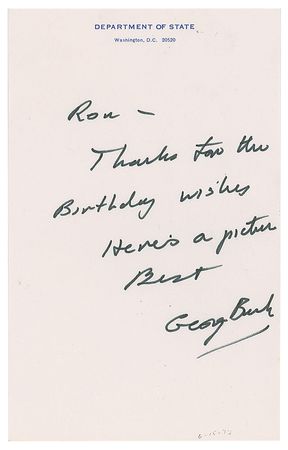 DEPARTMENT OF STATE
Washington, D.C. 20520
Ron —
Thanks for the
Birthday wishes
Here's a picture
Best
George Bush